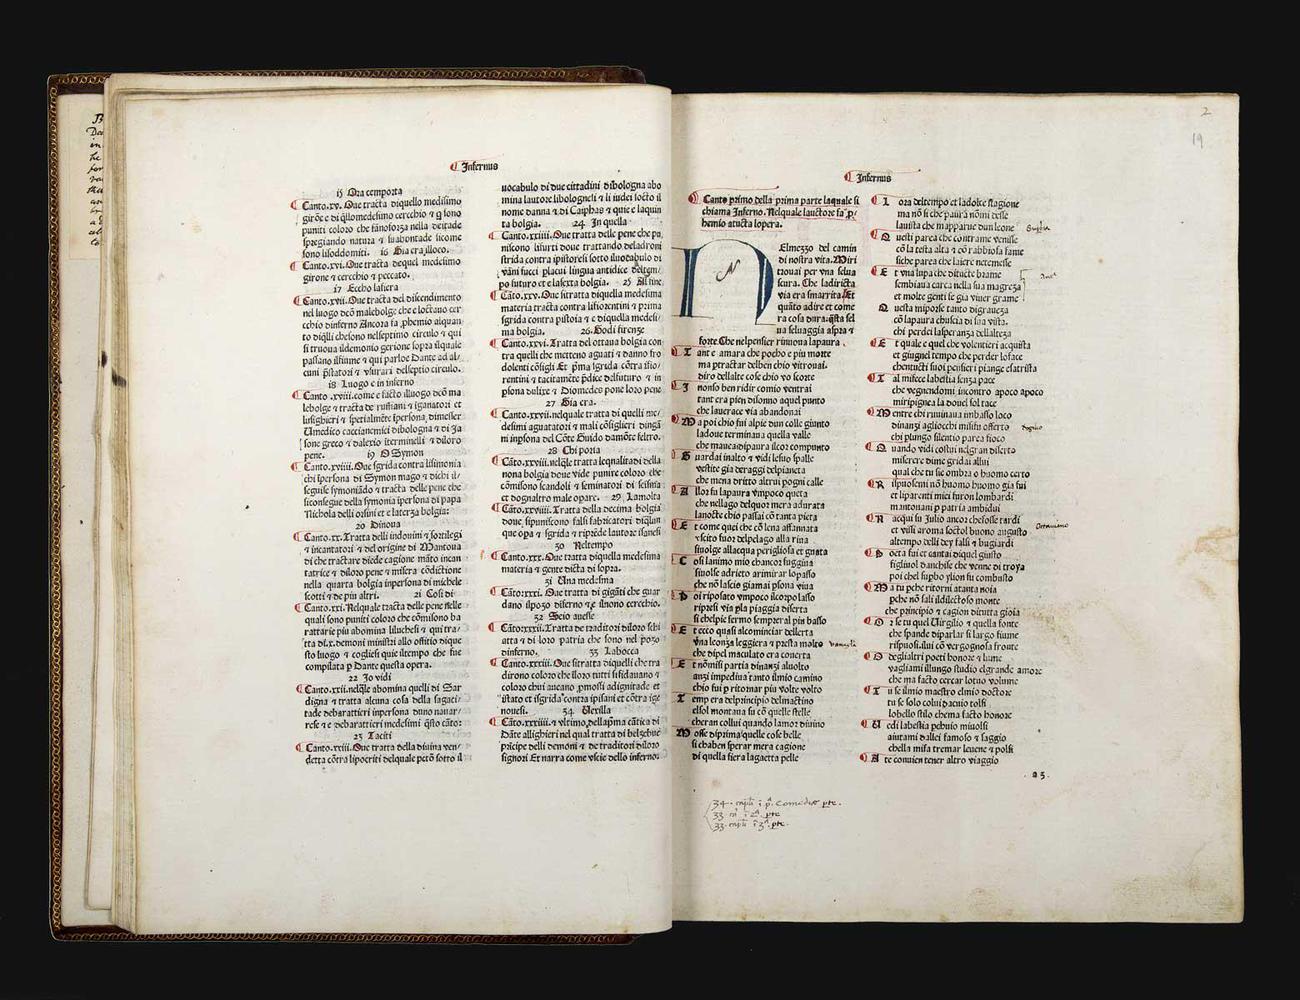 Infernus
15 Ora cemporta
Canto.xv. Oue tracta diquello medesimo
girõe ⁊ di q̃llo medesimo cerchio ⁊ q̃ sono
puniti coloro che fãno forza nella deitade
spregiando natura ⁊ sua bontade sicome
sono li soddomiti. 16 Gia era illoco.
Canto.xvi. Oue tracta dequel medesimo
girone ⁊ cerchio ⁊ peccato.
17 Eccho lafiera
Canto.xvii. Oue tracta del discendimento
nel luogo decõ malebolge che e loctauo cer
cchio dinferno Ancora fa ,phemio alquan
to diq̃lli che sono nelseptimo circulo ⁊ qui
si truoua ildemonio gerione sopra ilquale
passano ilfiume ⁊ qui parloe Dante ad al,
cuni p̃statori ⁊ vsurari delseptio circulo.
18 Luogo e in inferno
Canto.xviii. come e facto illuogo decõ ma
lebolge ⁊ tracta de ruffiani ⁊ iganatori et
lusighieri ⁊
Umedico caccianemici dibologna ⁊ di Ja
sone greco ⁊ dalexio iterminelli ⁊ diloro
pene. 19 O Symon
Canto.xviiii. Oue sgrida contra lisimonia
chi ipersona di Symon mago ⁊ dichi il,
seguise symoniãdo ⁊ tracta delle pene che
sitonsegue della symonia ipersona di papa
Nichola delli orsini et e laterza bolgia:
20 Dinoua
Canto.xx. Tratta delli indouini ⁊ sortilegi
⁊ incantatori ⁊ del origine di Mantoua
di che tractare diede cagione mãto incan
tatrice ⁊ diloro pene ⁊ misera cõdictione
nella quarta bolgia inpersona di michele
scotti ⁊ de piu altri. 21 Cosi di
Canto.xxi. Nelquale tracta delle pene nelle
quali sono puniti coloro che cõmisono ba
rattarie piu abomina liluchesi ⁊ qui tra,
tta di.x. demoni ministri allo offitio dique
sto luogo ⁊ cogliesi qui iltempo che fue
compilata p Dante questa opera.
22 Jo vidi
Canto.xxii. nelq̃le abomina quelli di Sar
digna ⁊ tratta alcuna cosa della sagaci,
tade debarattieri inpersona duno nauar,
rese ⁊ e debarattieri medesimi q̃sto cãto:
23 Taciti
Canto.xxiii. Oue tratta della diuina ven,
detta cõtra lipocriti delquale petõ sotto il
uocabulo di due cittadini dibologna abo
mina lautore libolognesi ⁊ li iudei socto il
nome danna ⁊ di Caiphas ⁊ qui e laquin
ta bolgia. 24 In quella
Canto.xxiiii. Oue tratta delle pene che pu,
niscono lifurti doue trattando deladroni
sgrida contra ipistoresi sotto iluocabulo di
vãni fucci placui lingua antidice deltem,
po futuro et e lasexta bolgia. 25 Al fine
Cãto.xxv. Oue sitratta diquella medesima
materia tracta contra lifiorentini ⁊ prima
sgrida contra pistoia ⁊ e diquella medesi,
ma bolgia. 26. Godi firenze
Canto.xxvi. Tratta del ottaua bolgia con
tra quelli che metteno aguati ⁊ danno fro
dolenti cõsigli Et p̃ma sgrida cõtra ifio,
rentini ⁊ tacitamẽte p̃dice delfuturo ⁊ in
psona dulixe ⁊ Diomedes pone loro pene
27 Gia era.
Canto.xxvii. nelquale tratta di quelli me,
desimi aguatatori ⁊ mali cõsiglieri dingã
ni inpsona del Cõte Guido damõte feltro.
28 Chi poria
Cãto.xxviii. nelq̃le tratta leqnalita di della
nona bolgia doue vide punire coloro che
cõmisono scandoli ⁊ seminatori di scisma
et dognaltro male opare. 29 Lamolta
Canto.xxviiii. Tratta della decima bolgia
doue sipuniscono falsi fabricatori diq̃lun
que opa ⁊ sgrida ⁊ ripr̃de lautore isanesi
30 Neltempo
Canto.xxx. Oue tratta diquella medesima
materia ⁊ gente dicta di sopra.
31 Una medesma
Canto.xxxi. Oue tratta di gigãti che guar
dano ilpozo diferno ⁊ e ilnono cerchio.
32 Seio auesse
Cãtoxxxii. Tratta de traditori diloro schi
atta ⁊ di loro patria che sono nel pozo
dinferno. 33 Labocca
Canto.xxxiii. Oue sitratta diquelli che tra
dirono coloro che illoro tutti sifidauano ⁊
coloro chui aueano ,pmossi adignitade et
istato et isgrida contra ipisani et cõtra ige
nouesi. 34 Uexilla
Cãto.xxxiiii. ⁊ vltimo dellap̃ma cãtica di
Dãte allighieri nel qual tratta di belzebue
p̃ncipe delli demoni ⁊ de traditori diloro
signori Et narra come vscie dello inferno.
Infernus
2
19
Canto primo della prima parte laquale si
chiama Inferno. Nelquale lauctore fa ,p,
hemio atucta lopera.
N Elmezzo del camin
di nostra vita. Miri
trouai per vna selua
scura. Che ladiricta
via era smarrita. Et
quãto adire et come
era cosa dura. q̃sta sel
ua seluaggia aspra ⁊
forte. Che nelpensier rinuoua lapaura.
T ant e amara che pocho e piu morte
ma ptractar delben chio vitrouai.
diro dellalte cose chio vo scorte
I nonso ben ridir comio ventrai
tant era pien disonno aquel punto
che lauerace via abandonai
M a poi chio fui alpie dun colle giunto
ladoue terminaua quella valle
che maueadipaura ilcor compunto
G uardai inalto ⁊ vidi lesue spalle
vestite gia deraggi delpianeta
che mena dritto altrui pogni calle
A llor fu lapaura vmpoco queta
che nellago delquor mera adurata
lanocte chio passai cõ tanta pieta
E t come quei che cõ lena affannata
vscito fuor delpelago alla riua
siuolge allacqua perigliosa et guata
C osi lanimo mio chancor fuggina
siuolse adrieto arimirar lopasso
che nõ lascio giamai psona viua
P oi riposato vmpoco ilcorpo lasso
ripresi via pla piaggia diserta
si chelpie fermo sempreral piu basso
E t ecco quasi alcominciar dellerta
vna leonza leggiera ⁊ presta molto
che dipel maculato era couerta
E t nõmisi partia dinanzi aluolto
anzi impediua tanto ilmio camino
chio fui p ritornar piu volte volto
T emp era delprincipio delmactino
elsol montaua su cõ quelle stelle
cheran collui quando lamor diuino
M osse diprima quelle cose belle
si chaben sperar mera cagione
di quella fiera lagaetta pelle
34. capli i p.ª Comedie pte.
33. ca i 2ª. pte
33. capli i 3ª. pte.
Infernus
L ora deltempo et ladolce stagione
ma nõ si che paura nõmi desse
lauista che mapparue dun leone
Q uesti parea che contrame venisse
cõ la testa alta ⁊ cõ rabbiosa fame
siche parea che laiere netemesse
E t vna lupa che ditucte brame
sembiaua carca nella sua magreza
et molte genti se gia viuer grame
Q uesta miporse tanto digraueza
cõ lapaura chuscia di sua vista.
chi perdei lasperanza dellalteza
E t quale e quel che volentieri acquista
et giugnel tempo che perder loface
chentucti suoi pensieri piange esatrista
T al mifece labestia senza pace
che vegnendomi incontro apoco apoco
miripignea la douel sol tace
M entre chi ruuinaua imbasso loco
dinanzi agliocchi misifu offerto
chi plungo silentio parea fioco
Q uando vidi costui nelgran diserto
miserere dime gridai allui
qual che tu sie ombra o huomo certo
R ispuosemi nõ huomo huomo gia fui
et liparenti miei furon lombardi
mantoani p patria ambidui
N acqui su Julio ancor chefosse tardi
et vissi aroma soctol buono augusto
altempo delli dey falsi ⁊ bugiardi
P oeta fui et cantai diquel giusto
figliuol danchise che venne di troya
poi chel supbo ylion fu combusto
M a tu pche ritorni atanta noia
pche nõ sali ildilectoso monte
che principio ⁊ cagion ditutta gioia
O r se tu quel Uirgilio ⁊ quella fonte
che spande diparlar si largo fiume
rispuosi. llui cõ vergognosa fronte
O deglialtri poeti honore ⁊ lume
vagliami illungo studio elgrande amore
che ma facto cercar lotuo volume
T u se ilmio maestro elmio doctore
tu se solo colui dacuio tolsi
lobello stilo chema facto honore
U edi labestia pchuio miuolsi
aiutami dallei famoso ⁊ saggio
chella misa tremar leuene ⁊ polsi
A te conuien tener altro viaggio
a5.